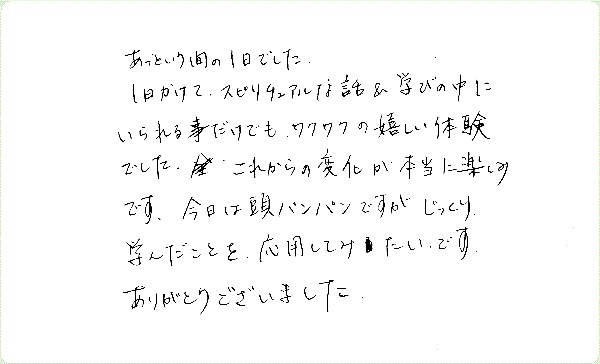 あっという間の1日でした.
1日かけて、スピリチュアルな話& 学びの中に
いられる事だけでも、ワクワクの嬉しい体験
でした. これからの変化が本当に楽しみ
です、今日は頭パンパンですが じっくり.
学んだことを、応用してみたいです.
ありがとうございました.